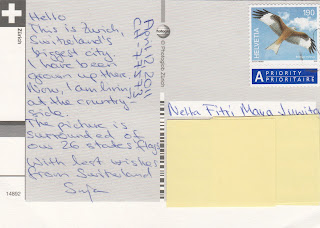 Zürich
Hello
This is Zurich,
Switzerland's
biggest city.
I have been
grown up ther.
Now, I am living
at the country-
side.
The picture is
surrounded of
our 26 states flags
With best wishes
from Switzerland
April 2011
CH-
© Photoglob Zürich
190
HELVETIA
A PRIORITY
PRIORITAIRE
Nella Fitri Maya
14692